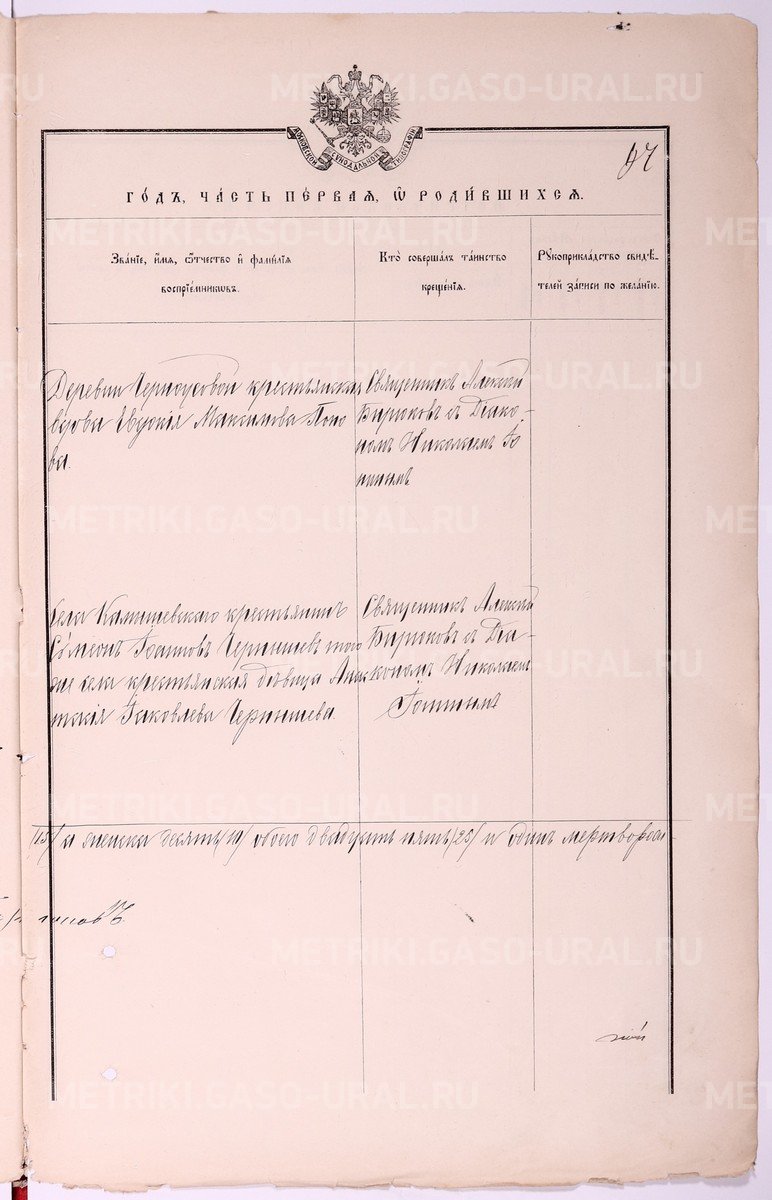 METRIKI.GASO-URAL.RU
МОСКОВСКОЙ СѴНОДАЛЬНОЙ ТИПОГРАФІИ
ГО́ДЪ, ЧА́СТЬ ПЕ́РВАЯ, Ѡ РОДИ́ВШИХСЯ.
Зва́ніе, и́мя, о́тчество и҆ фами́лія
воспріе́мниковъ.
Кто̀ соверша́лъ та́инство
креще́нія.
Рꙋкоприкла́дство свидѣ́-
телей за́писи по жела́нію.
Деревни Черноусовой крестьянская
Евдокія Максимова Попо
ва.
Священникъ Алексій
Бирюковъ съ Діако-
номъ Николаемъ
села Камышевскаго крестьянинъ
Сѷмеонъ Іоанновъ Чернышевъ того
же села крестьянская дѣвица
Іаковлева Чернышева.
Священникъ Алексій
Бирюковъ съ Діа-
кономъ Николаемъ
/15/ а женска десять /10/ обоего двадцать пять /25/ и одинъ мертворож